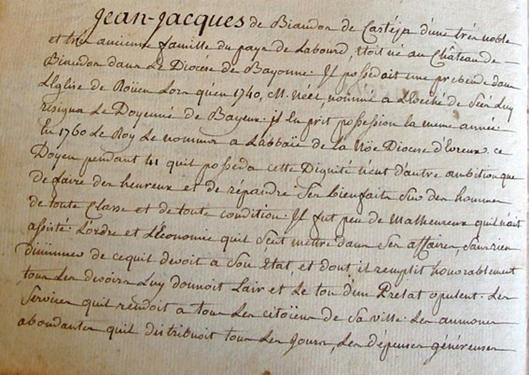 Jean-Jacques de Biaudon de Castéja d'une très noble
et très ancienne famille du pays de Labourd, étoit né au Château de
Biaudon dans Le Diocèse de Bayonne. Il possédait une prébende dans
L'Eglise de Roüen Lors qu'en 1740, M. Néel nommé a L'evêché de Séez Luy
résigna Le Doyenné de Bayeux. il En prit possession la meme année.
En 1760 Le Roy Le nomma a L'abbaïe de la Nöe Diocèse d'Evreux. ce
Doyen pendant 41 qu'il posseda cette Dignité n'eut d'autre ambition que
de faire des heureux et de repandre Ses bienfaits Sur des hommes
de toute Classe et de toute condition. Il fut peu de Malheureux qu'il n'ait
assisté. L'ordre et L'Economie qu'il Sçut mettre dans Ses affaires, Sans rien
diminuer de ce qu'il devoit a Son Etat et dont il remplit honorablement
tous Les devoirs Luy donnoit L'air et Le ton d'un Prelat opulent. Les
Services qu'il rendoit a tous Les citoïens de Sa ville. Les aumones
abondantes qu'il distribuoit tous Les jours, Les dépenses généreuses